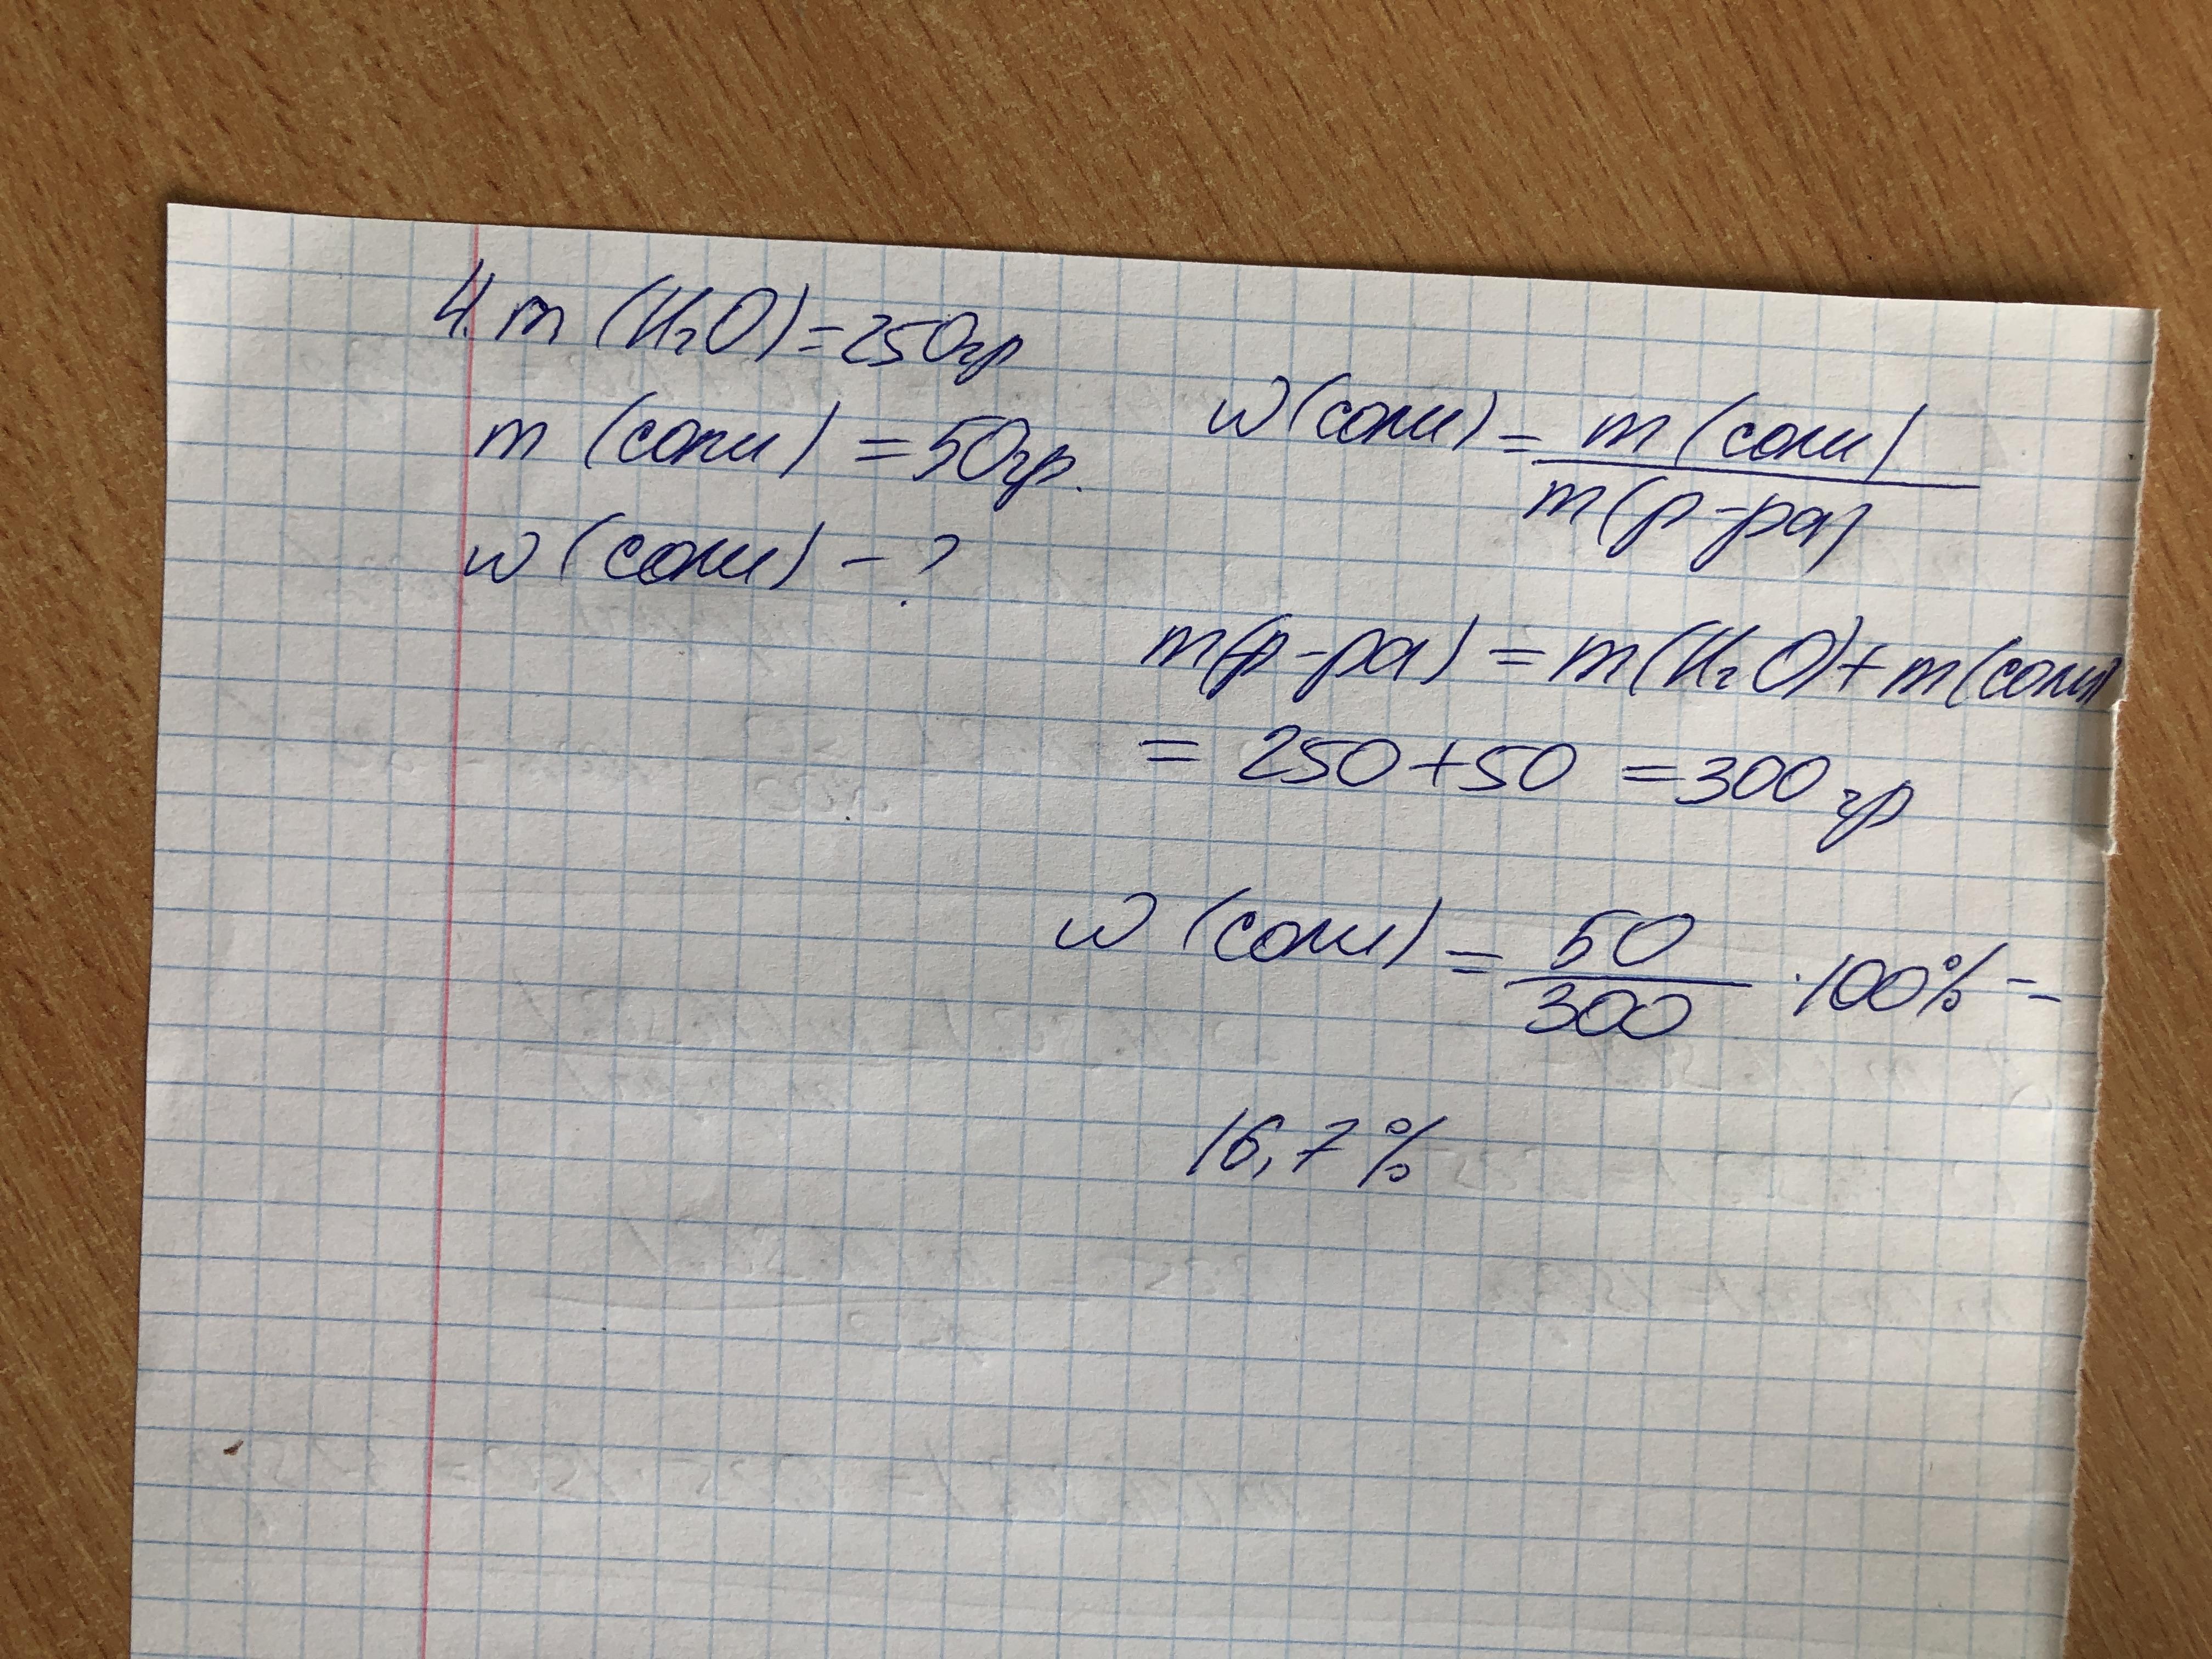 4. m (H₂O) = 250гр
m (соли) = 50гр.
w (соли) - ?
w (соли) = m (соли)
m (р-ра)
m(р-ра) = m(H₂O) + m(соли)
= 250 + 50 = 300 гр
w (соли) = 50
300 · 100% =
16,7 %